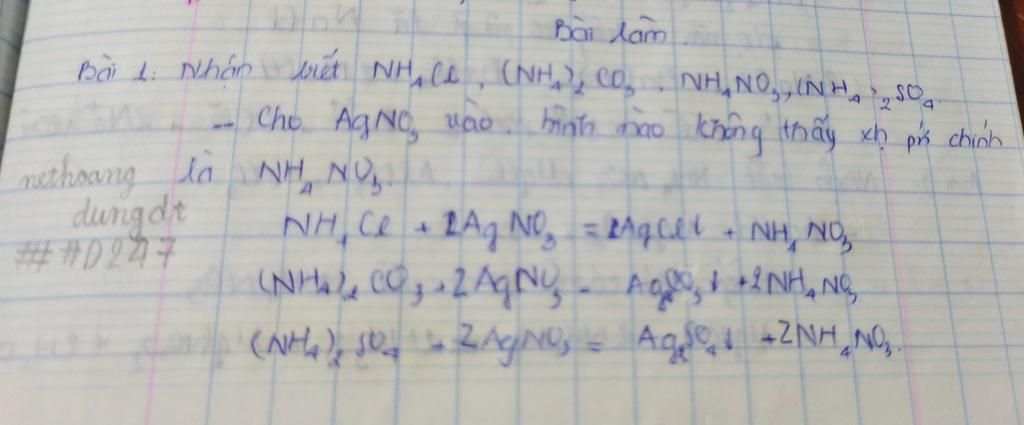 Bài làm.
Bài 1: Nhận biết NH4Cl, (NH4)2CO3, NH4NO3, (NH4)2SO4.
- Cho AgNO3 vào. bình nào không thấy xh pứ chính
là NH4NO3.
nethoang
dungdt
###D247
NH4Cl + 2AgNO3 = 2AgCl↓ + NH4NO3
(NH4)2CO3 + 2AgNO3 = Ag2CO3↓ + 2NH4NO3
(NH4)2SO4 + 2AgNO3 = Ag2SO4↓ + 2NH4NO3.